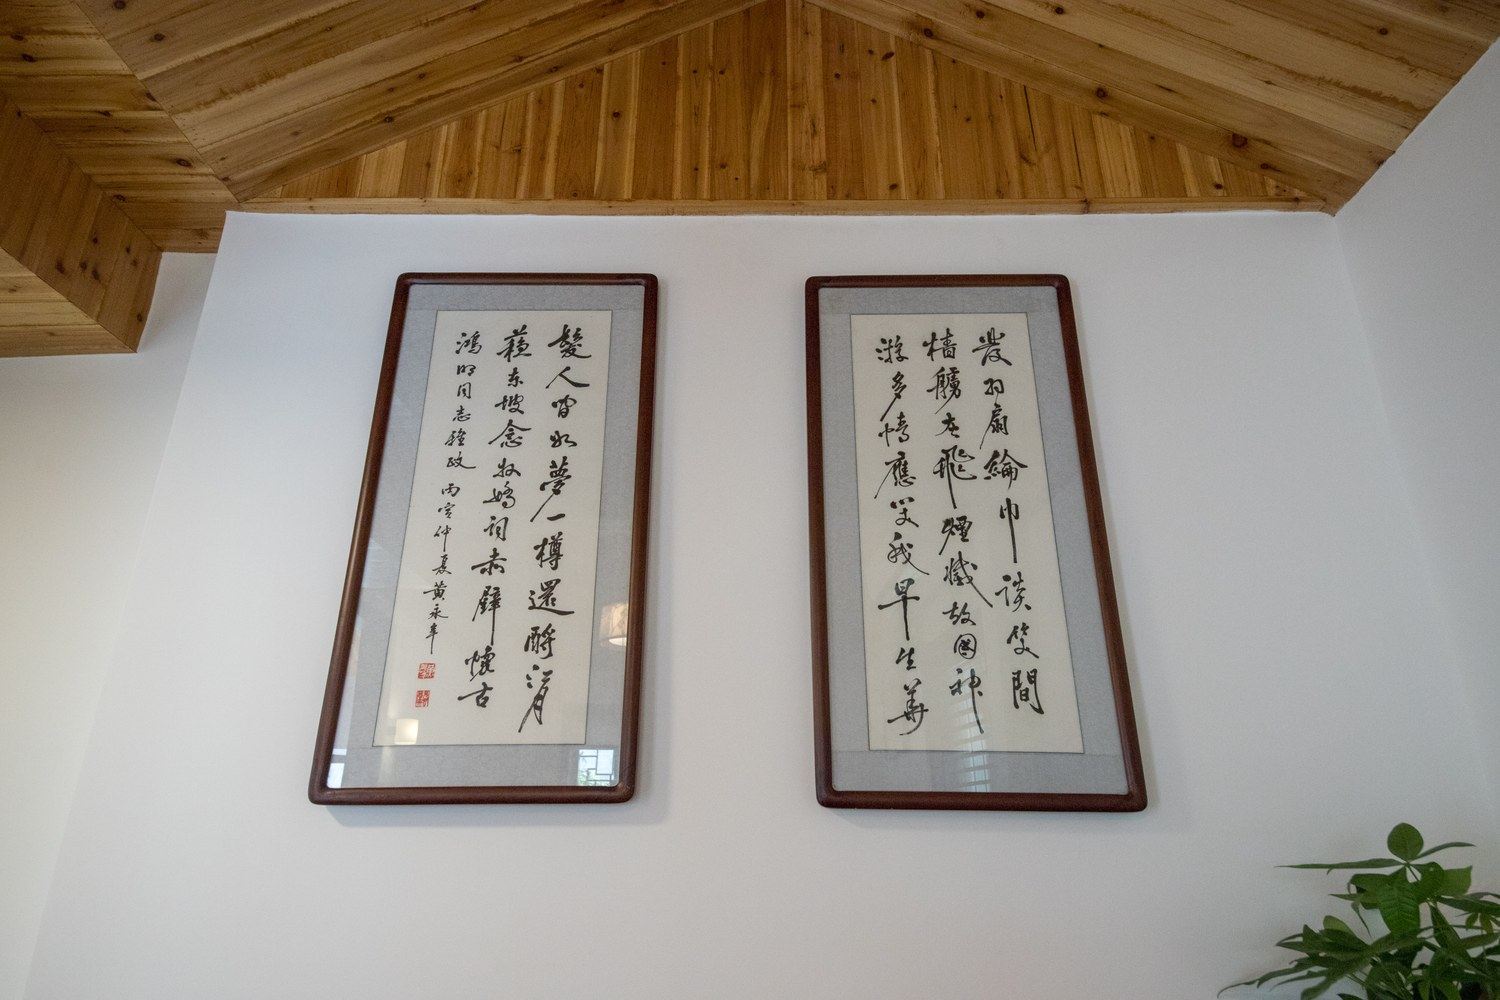 發羽扇綸巾談笑間
檣艣灰飛煙滅故國神
游多情應笑我早生華
髮人間如夢一樽還酹江月
蘇東坡念奴嬌詞赤壁懷古
鴻明同志雅政 丙寅仲夏黃永年